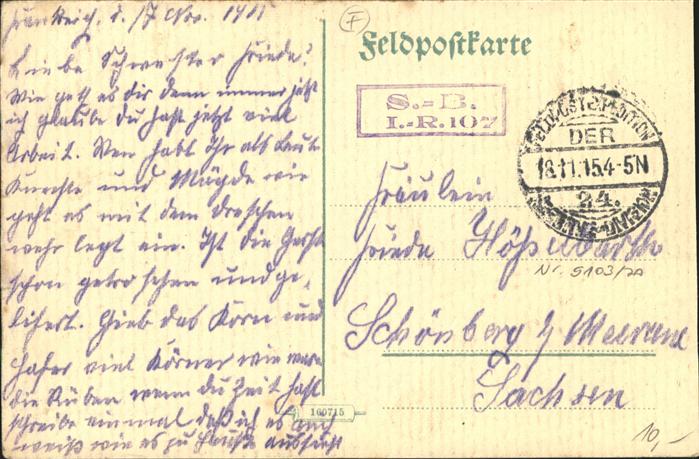 Frankreich, d. 17 Nov. 1915
Liebe Schwester Friede!
Wie geht es dir denn immer jetzt
ich glaube du hast jetzt viel
Arbeit. Wen habt Ihr als Leute
Knechte und Mägde wie
geht es mit dem dreschen
wehr legt ein. Ist die Gerste
schon getroschen und ge-
lifert. Gieb das Korn und
Hafer viel Körner wie war
die Rüben wenn du Zeit hast
schreibe einmal daß ich es auch
weiß wie es zu Hause aussieht
F
Feldpostkarte
S.-B.
I.-R. 107
FELDPOSTEXPEDITION
DER
18.11.15 4-5N
24.
Fräulein
Friede
Nr. 5103/7A
Schönberg b/ Meerane
Sachsen
160715
10,-